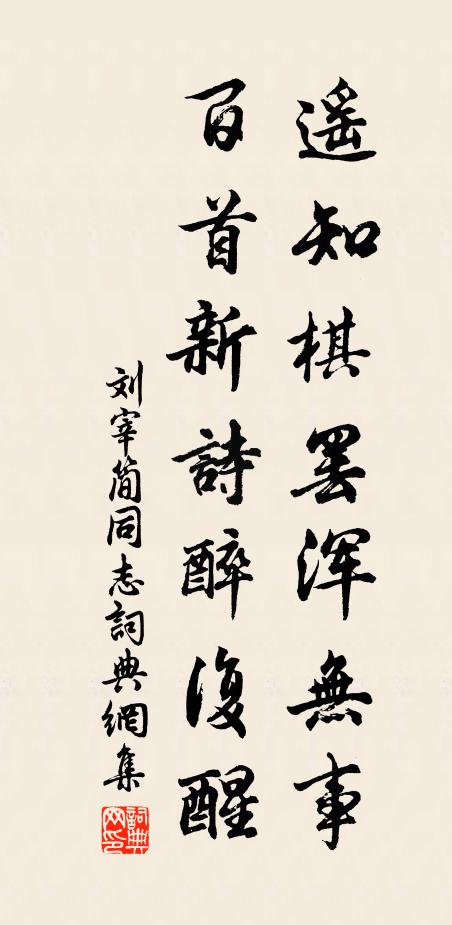 遥知棋罢浑無事
百首新詩醉復醒
刘宰简同志詞典網集
詞典網印